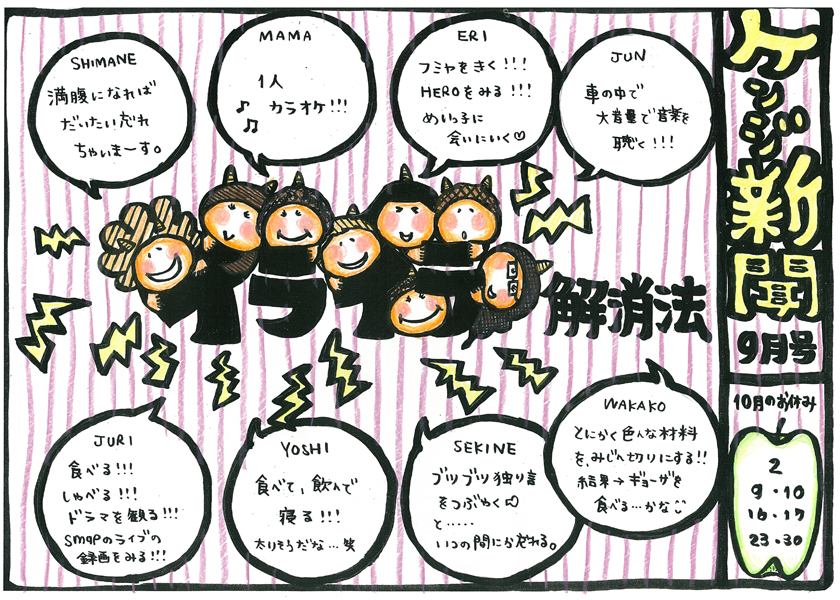 ケンジ新聞
9月号
10月のお休み
2
9・10
16・17
23・30
イライラ
解消法
SHIMANE
満腹になれば
だいたい忘れ
ちゃいまーす。
MAMA
1人
カラオケ!!!
ERI
フミヤをきく!!!
HEROをみる!!!
めいっ子に
会いにいく♡
JUN
車の中で
大音量で音楽を
聴く!!!
JURI
食べる!!!
しゃべる!!!
ドラマを観る!!!
SMAPのライブの
録画をみる!!!
YOSHI
食べて、飲んで
寝る!!!
太りそうだな…笑
SEKINE
ブツブツ独り言
をつぶやく♡
と.....
いつの間にか忘れる。
WAKAKO
とにかく色んな材料
を、みじん切りにする!!
結果→ギョーザを
食べる…かな